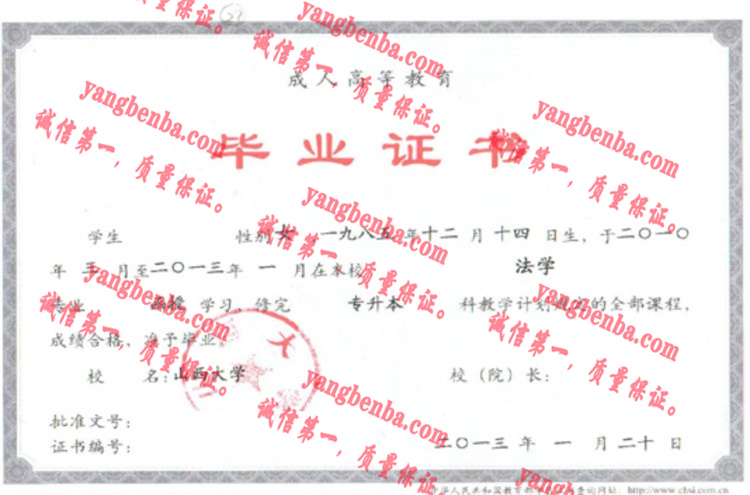 成人高等教育
毕业证书
学生 性别 女 , 一九八五 年 十二 月 十四 日生, 于二〇一〇
年 三 月至二〇一三年 一 月在本校 法学
专业 函授 学习, 修完 专升本 科教学计划规定的全部课程,
成绩合格, 准予毕业。
校 名: 山西大学 校(院)长:
批准文号:
证书编号: 二〇一三 年 一 月 二十 日
中华人民共和国教育部 查询网址: http://www.chsi.com.cn
yangbenba.com
诚信第一,质量保证。
yangbenba.com
诚信第一,质量保证。
yangbenba.com
诚信第一,质量保证。
yangbenba.com
诚信第一,质量保证。
yangbenba.com
诚信第一,质量保证。
yangbenba.com
诚信第一,质量保证。
yangbenba.com
诚信第一,质量保证。